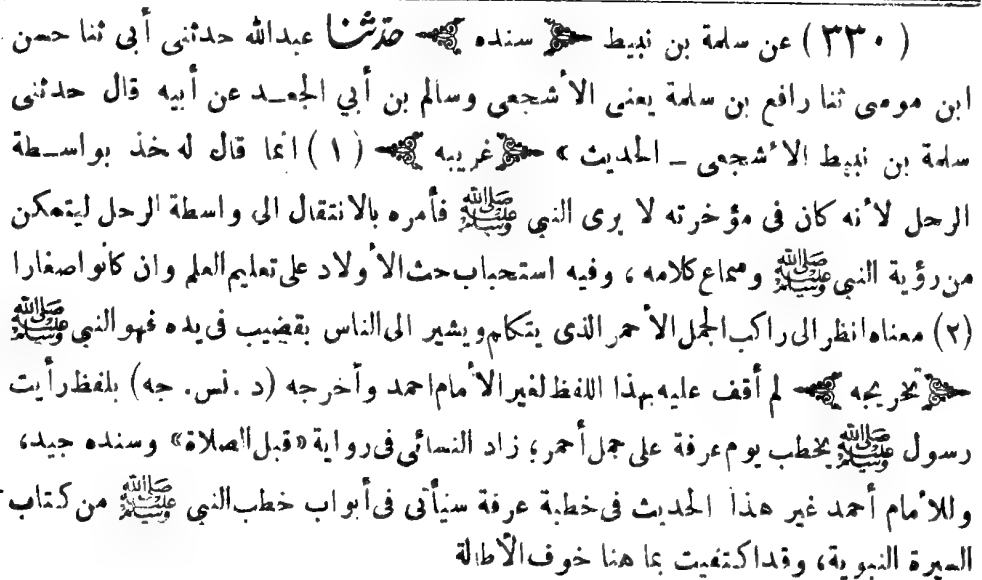 (٣٣٠) عن سلمة بن نبيط ﴿ سنده ﴾ حدّثنا عبدالله حدثنى أبى ثنا حسن
ابن موسى ثنا رافع بن سلمة يعنى الأشجعى وسالم بن أبي الجعد عن أبيه قال حدثنى
سلمة بن نبيط الأشجعى ــ الحديث » ﴿ غريبه ﴾ (١) انما قال له خذ بواسطة
الرحل لأنه كان فى مؤخرته لا يرى النبى ﷺ فأمره بالانتقال الى واسطة الرحل ليتمكن
من رؤية النبى ﷺ وسماع كلامه ، وفيه استحباب حث الأولاد على تعليم العلم وان كانوا صغارا
(٢) معناه انظر الى راكب الجمل الأحمر الذى يتكلم ويشير الى الناس بقضيب فى يده فهو النبى ﷺ
﴿ تخريجه ﴾ لم أقف عليه بهذا اللفظ لغير الأمام احمد وأخرجه (د . نس . جه) بلفظ رأيت
رسول ﷺ يخطب يوم عرفة على جمل أحمر ؛ زاد النسائى فى رواية «قبل الصلاة» وسنده جيد ،
وللأمام أحمد غير هذا الحديث فى خطبة عرفة سيأتى فى أبواب خطب النبى ﷺ من كتاب
السيرة النبوية ، وقد اكتفيت بما هنا خوف الأطالة